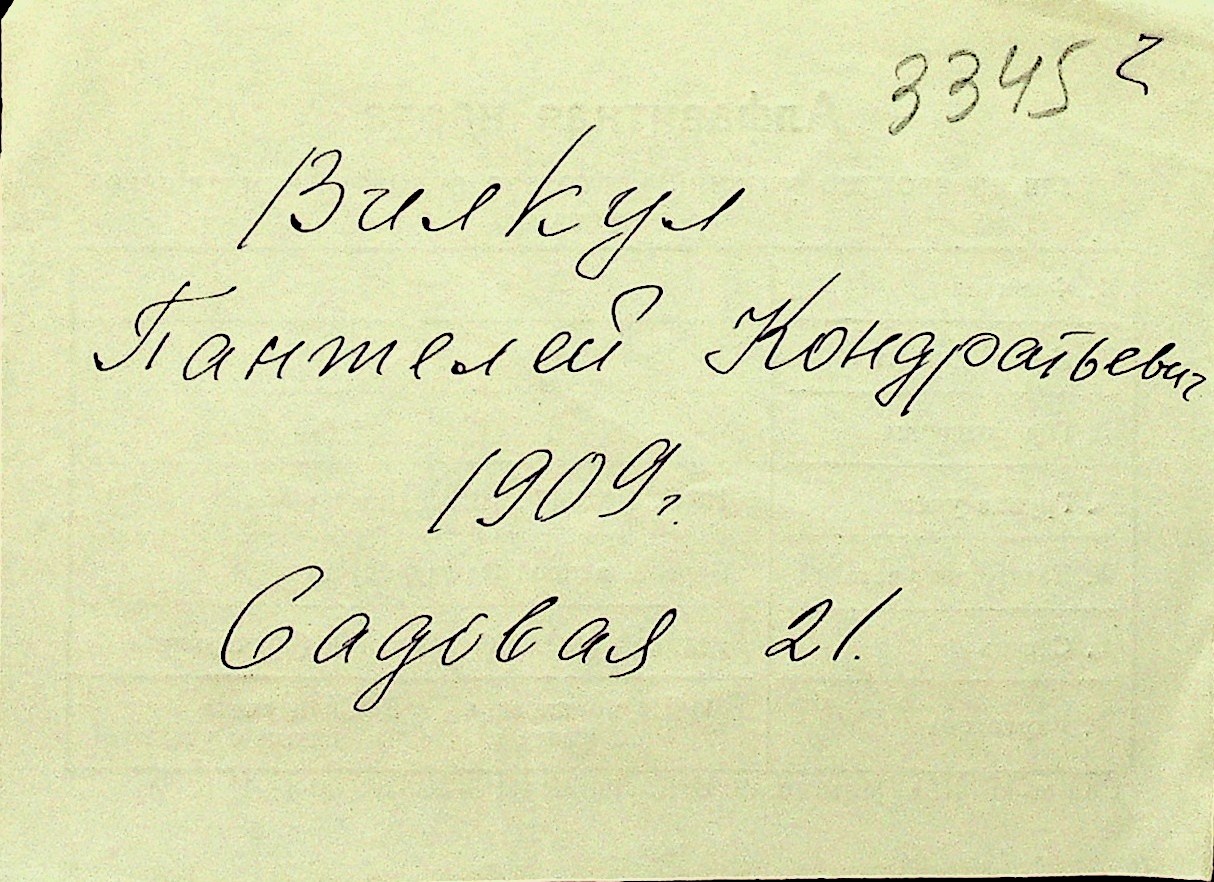 3345 г
Вилкул
Пантелей Кондратьевич
1909г.
Садовая 21.